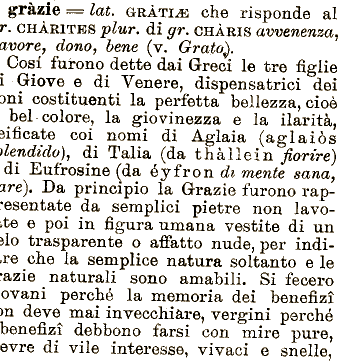 gràzie = lat. GRÀTIÆ che risponde al
r. CHÀRITES plur. di gr. CHÀRIS avvenenza,
avore, dono, bene (v. Grato).
Cosí furono dette dai Greci le tre figlie
i Giove e di Venere, dispensatrici dei
oni costituenti la perfetta bellezza, cioè
bel colore, la giovinezza e la ilarità,
eificate coi nomi di Aglaia (aglaiòs
plendido), di Talia (da thàllein fiorire)
di Eufrosine (da éyfron di mente sana,
are). Da principio la Grazie furono rap-
resentate da semplici pietre non lavo-
te e poi in figura umana vestite di un
elo trasparente o affatto nude, per indi-
re che la semplice natura soltanto e le
razie naturali sono amabili. Si fecero
ovani perché la memoria dei benefizî
on deve mai invecchiare, vergini perché
benefizî debbono farsi con mire pure,
evre di vile interesse, vivaci e snelle,